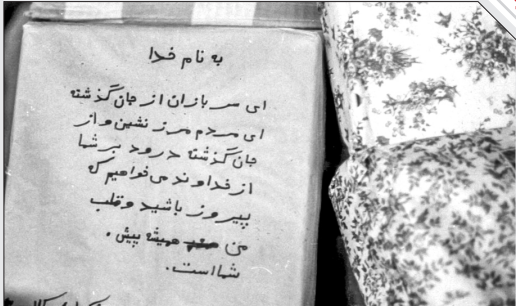 به نام خدا
ای سربازان از جان گذشته
ای مردم مرز نشین و از
جان گذشته درود بر شما
از خداوند می خواهیم که
پیروز باشید و قلب
من همیشه پیش
شما است.